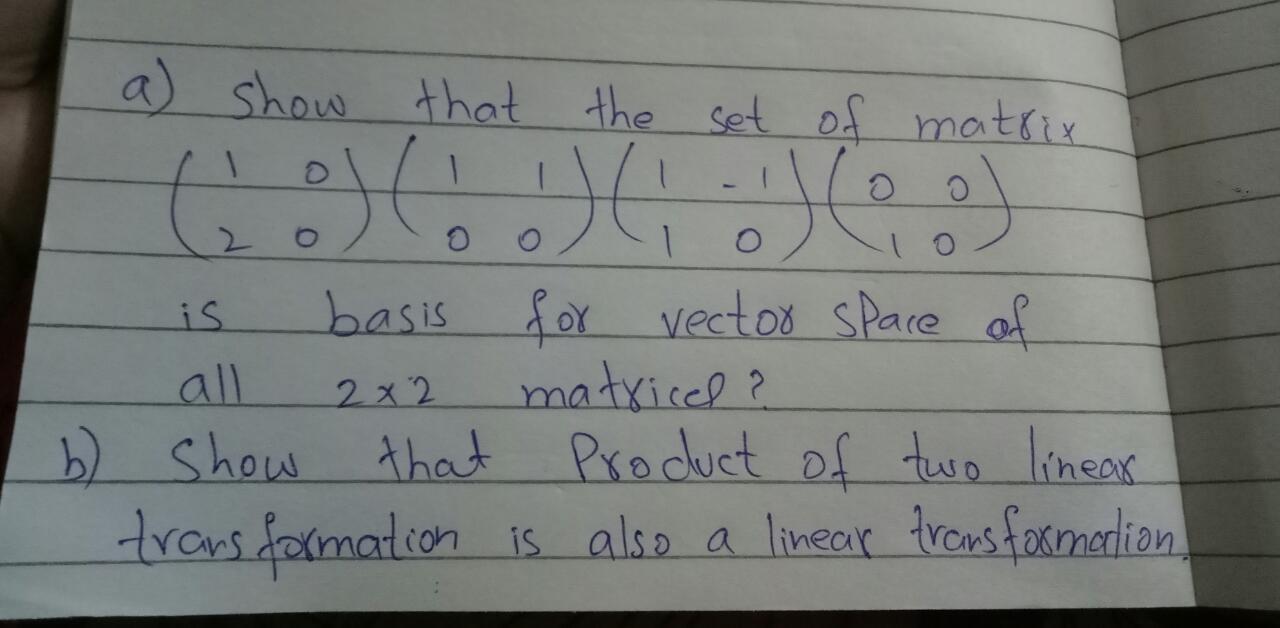 a) show that the set of matrix
( 1 0 ) ( 1 1 ) ( 1 -1 ) ( 0 0 )
( 2 0 ) ( 0 0 ) ( 1 0 ) ( 1 0 )
is basis for vector space of
all 2x2 matrices?
b) Show that Product of two linear
transformation is also a linear transformation.